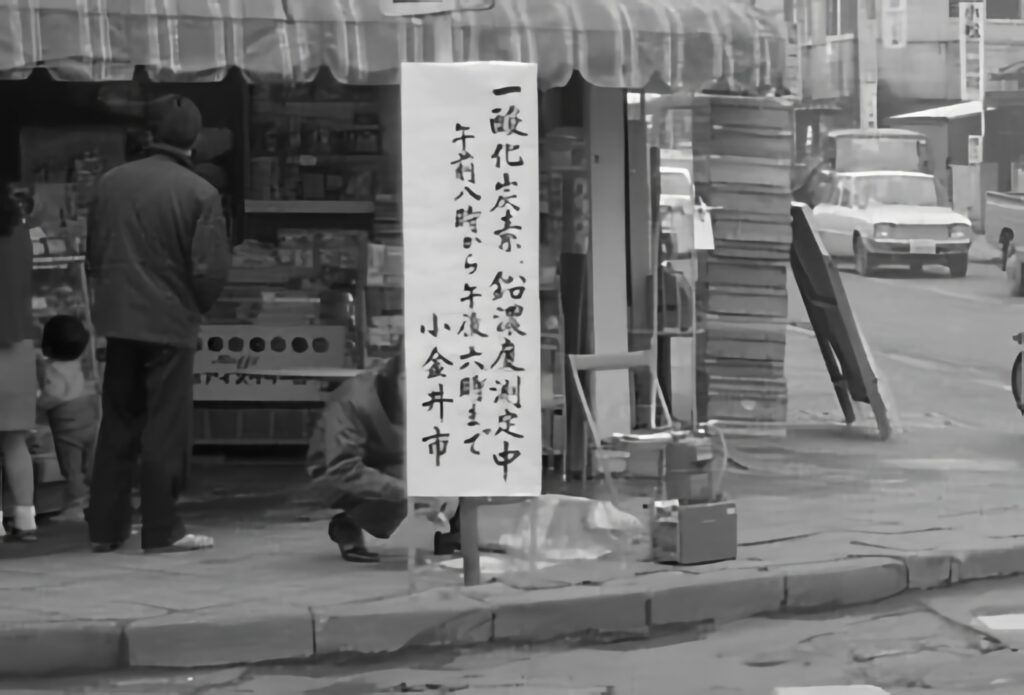 一酸化炭素、鉛濃度測定中
午前八時から午後六時まで
小金井市
アイスクリーム
小松